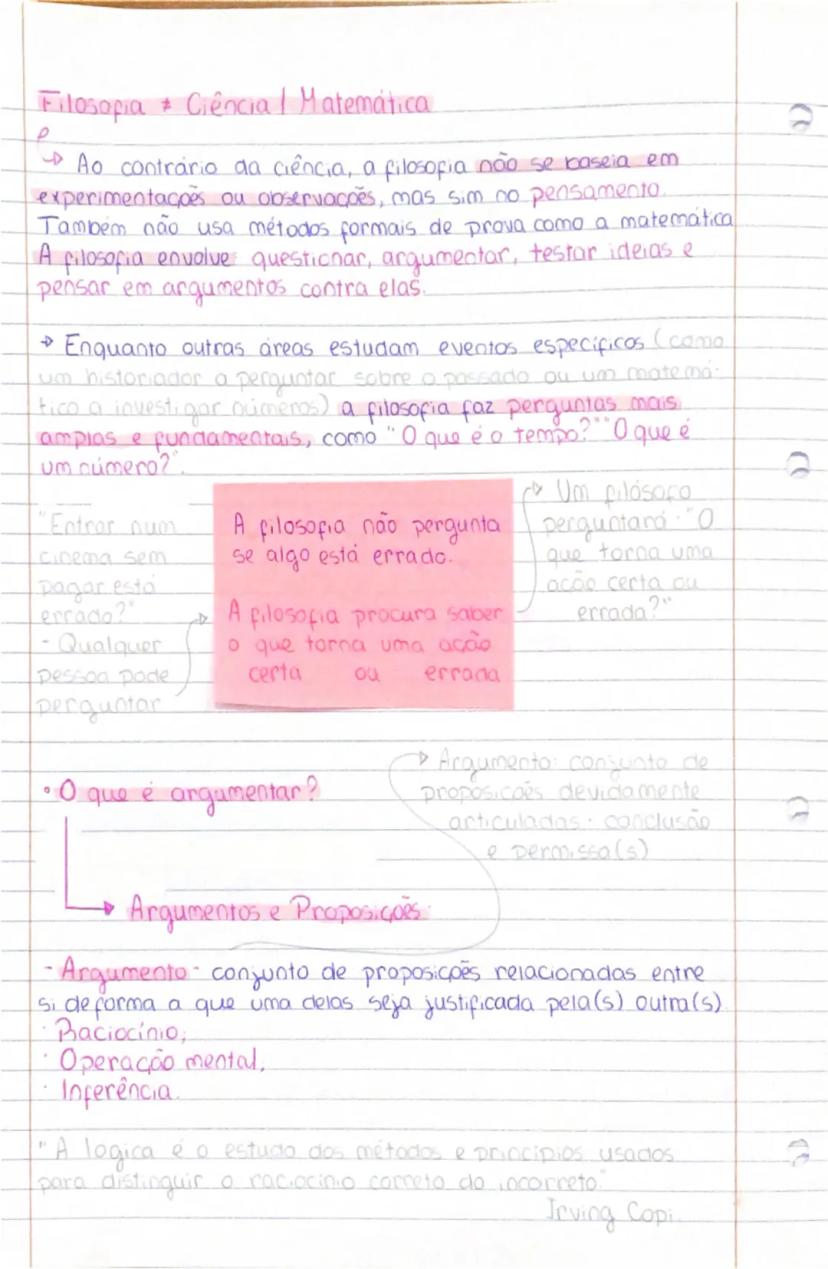 Filosofia ≠ Ciência / Matemática
e
↳ Ao contrário da ciência, a filosofia não se baseia em
experimentações ou observações, mas sim no pensamento.
Também não usa métodos formais de prova como a matemática
A filosofia envolve: questionar, argumentar, testar ideias e
pensar em argumentos contra elas.
→ Enquanto outras áreas estudam eventos específicos (como
um historiador a perguntar sobre o passado ou um matemá-
tico a investigar números) a filosofia faz perguntas mais
amplas e fundamentais, como "O que é o tempo?" "O que é
um número?".
"Entrar num
cinema sem
pagar está
errado?"
- Qualquer
pessoa pode
perguntar
A filosofia não pergunta
se algo está errado.
A filosofia procura saber
o que torna uma ação
certa ou errada
→ Um filósofo
perguntará: "O
que torna uma
ação certa ou
errada?"
• O que é argumentar?
→ Argumento: conjunto de
proposições devidamente
articuladas: conclusão
e permissa(s)
→ Argumentos e Proposições:
- Argumento - conjunto de proposições relacionadas entre
si de forma a que uma delas seja justificada pela(s) outra(s)
· Raciocínio;
· Operação mental,
· Inferência.
"A lógica é o estudo dos métodos e princípios usados
para distinguir o raciocínio correto do incorreto."
Irving Copi.